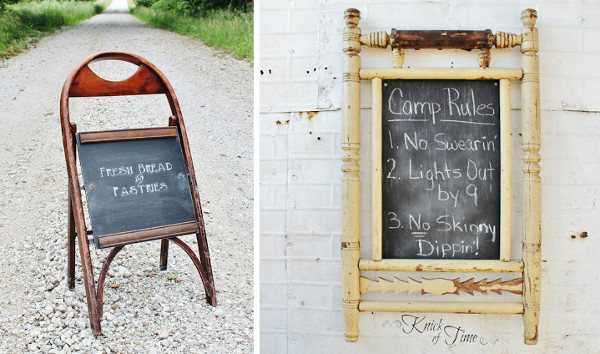 FRESH BREAD
and
PASTRIES
Camp Rules
1. No Swearin'
2. Lights Out
by 9
3. No Skinny
Dippin'!
Knick
of Time